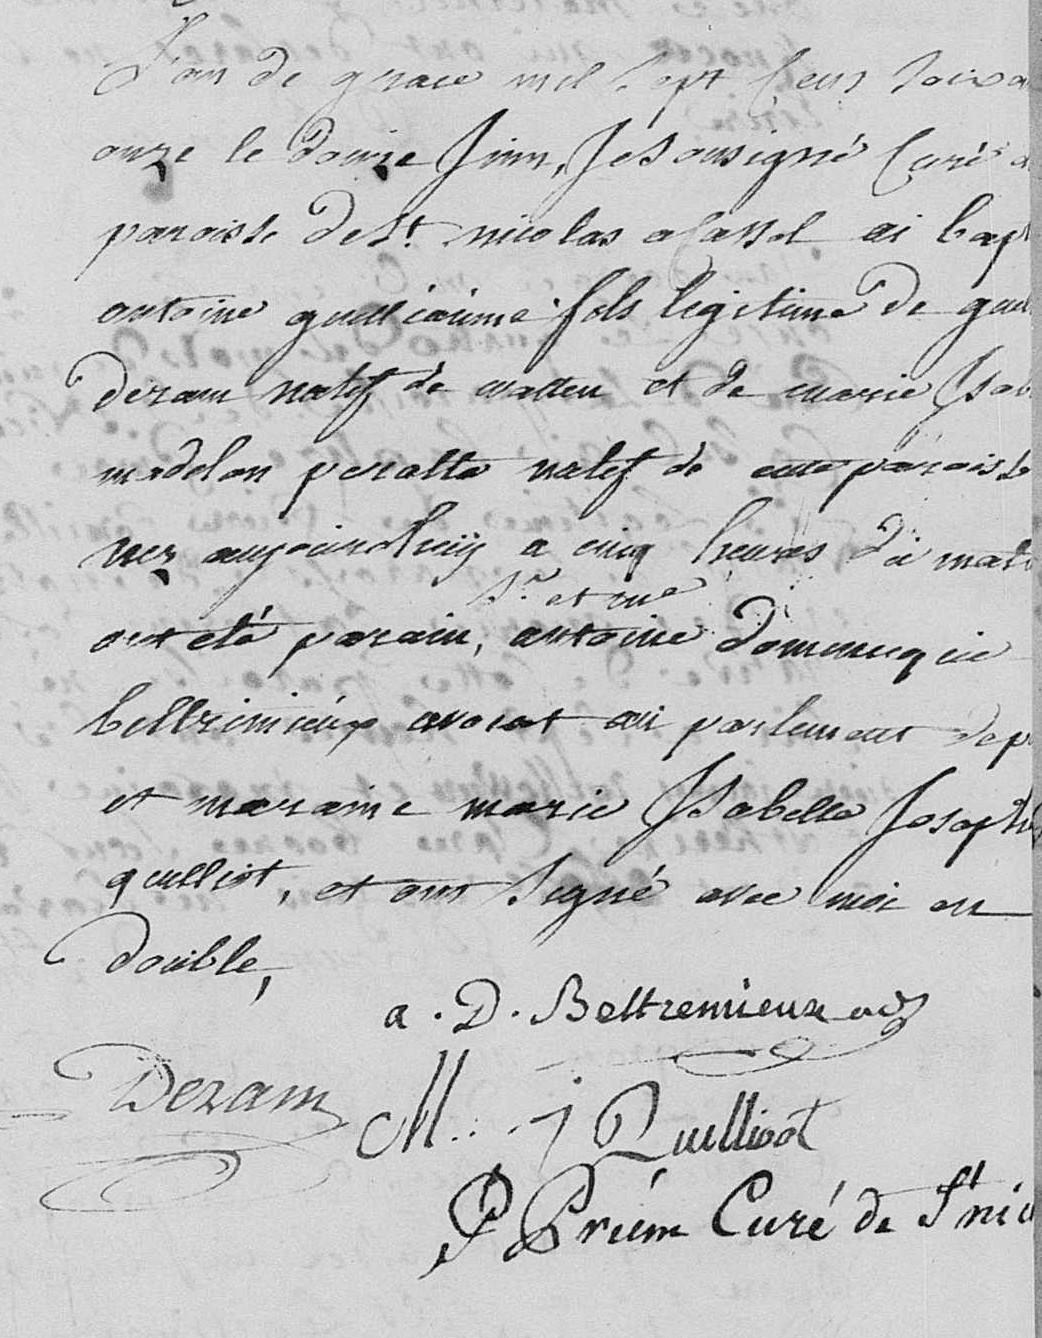 L'an de grace mil sept Cens soixa
onze le douze Juin, Je sousigné Curé d
paroisse de St. nicolas a Cassel ai bapt
antoine guilliaume fils legitime de guil
deram natif de watten et de marie Isab
madelon peralta natif de cette paroisse
nez aujourdhuij a cinq heures du mati
Sr. et me
ont eté parain, antoine domenique
beltrimieux avocat au parlement de p
et maraine marie Isabelle Joseph
quilliot, et ont signé avec moi en
double,
a. D. Beltremieux
Deram
M. J Quilliot
P Priém Curé de St nic